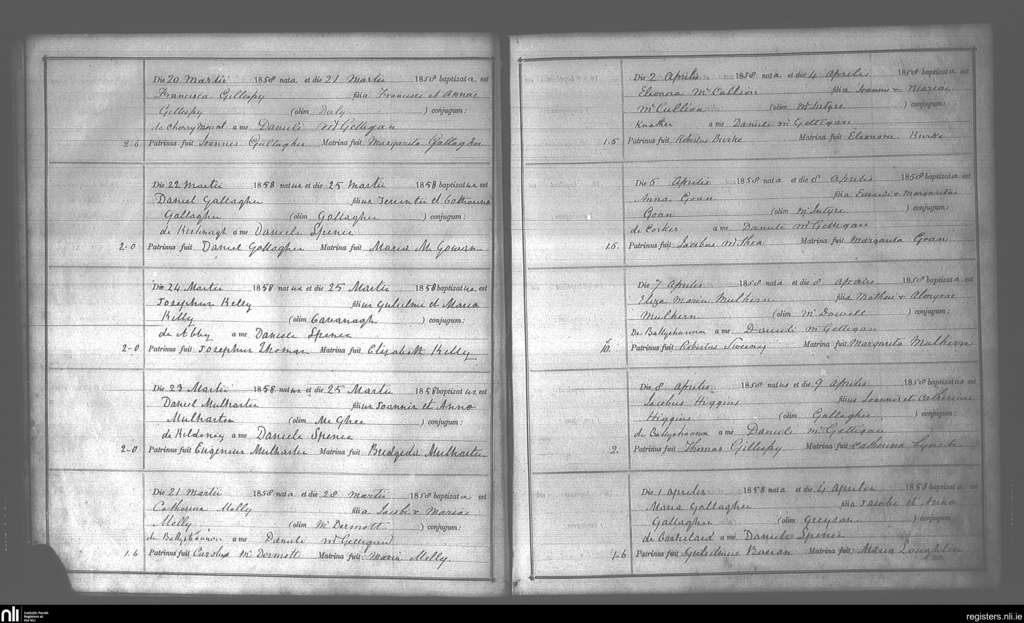 Die 20 Martii 1858 nata et die 21 Martii 1858 baptizata est
Francisca Gillespy filia Francisci et Annae
Gillespy (olim Daly ) conjugum:
de Cherrymount a me Daniele McGettigan
2-6 Patrinus fuit Joannes Gallagher Matrina fuit Margarita Gallagher
Die 22 Martii 1858 natus et die 25 Martii 1858 baptizatus est
Daniel Gallagher filius et Catharina
Gallagher (olim Gallagher ) conjugum:
de a me Daniele Spence
2-0 Patrinus fuit Daniel Gallagher Matrina fuit Maria McGowan
Die 24 Martii 1858 natus et die 25 Martii 1858 baptizatus est
Josephus Kelly filius Gulielmi et Maria
Kelly (olim Cavanagh ) conjugum:
de Abby a me Daniele Spence
2-0 Patrinus fuit Josephus Thomas Matrina fuit Elizabeth Kelly
Die 23 Martii 1858 natus et die 25 Martii 1858 baptizatus est
Daniel Mulharter filius Joannis et Anna
Mulharten (olim McGhee ) conjugum:
de Kildoney a me Daniele Spence
2-0 Patrinus fuit Eugenius Mulharter Matrina fuit Bridgida Mulharter
Die 21 Martii 1858 nata et die 28 Martii 1858 baptizata est
Catharina Melly filia Jacobi & Maria
Melly (olim McDermott ) conjugum:
de Ballyshannon a me Daniele McGettigan
1.6 Patrinus fuit Carolus McDermott Matrina fuit Maria Melly
Die 2 Aprilis 1858 nata et die 4 Aprilis 1858 baptizata est
Eleonora McCullion filia Joannis & Mariae
McCullion (olim McIntyre ) conjugum:
Knather a me Daniele McGettigan
1.5 Patrinus fuit Robertus Burke Matrina fuit Eleonora Burke
Die 6 Aprilis 1858 nata et die 8 Aprilis 1858 baptizata est
Anna Goan filia Edwardi & Margaritae
Goan (olim McIntyre ) conjugum:
de Corker a me Daniele McGettigan
Patrinus fuit Jacobus McShea Matrina fuit Margarita Goan
Die 7 Aprilis 1858 nata et die 8 Aprilis 1858 baptizata est
Eliza Maria Mulhern filia Mathaei &
Mulhern (olim McDowell ) conjugum:
De Ballyshannon a me Daniele McGettigan
Patrinus fuit Robertus Sweeney Matrina fuit Margarita Mulhern
Die 8 Aprilis 1858 natus et die 9 Aprilis 1858 baptizatus est
Jacobus Higgins filius Joannis et Catherine
Higgins (olim Gallagher ) conjugum:
de Ballyshannon a me Daniele McGettigan
2. Patrinus fuit Thomas Gillespy Matrina fuit Catharina
Die 1 Aprilis 1858 nata et die 4 Aprilis 1858 baptizata est
Maria Gallagher filia Jacobi et Anna
Gallagher (olim Greyson ) conjugum:
de a me Daniele Spence
1.6 Patrinus fuit Gulielmus Matrina fuit Maria Loughlin
nli Catholic Parish Registers at the NLI
registers.nli.ie